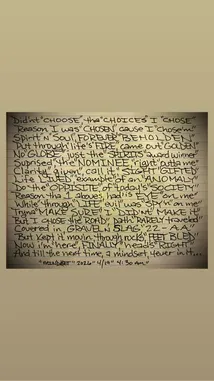 Didn't "CHOOSE" tha "CHOICES" I "CHOSE"
Reason I was "CHOSEN" cause I "chose'm"
Spirit 'N Soul, FOREVER "BEHOLDEN"
Put through life's FIRE, came out "GOLDEN"
No GLOBE, just the SPIRITS award winner
Suprised "the NOMINEE" right outta me"
Clarity given, call it "SIGHT" GIFTED
Life LIVED example of an "ANOMALY"
Do the "OPPOSITE, of today's "SOCIETY"
Reason tha 1 above, had is EYE on me
While through "LIFE" evil was "SPY'N" on me
Tryna "MAKE SURE" I DIDn't MAKE it"
But I chose the ROAD, path "RARELY traveled"
Covered in GRAVEL N SLAG, "22 - A.A"
But kept it movin, through rocks "FEET BLED"
Now i'm here, FINALLY head's RIGHT
And till the next time, a mindset, 4ever in it...
2026 "4/19" 4:30 am"